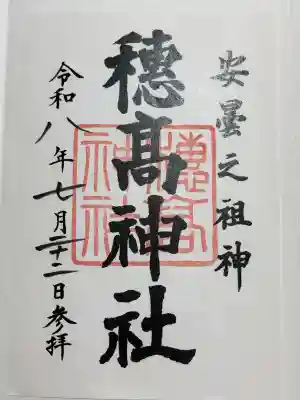 安曇之祖神
穂髙神社
令和八年七月二十二日参拝